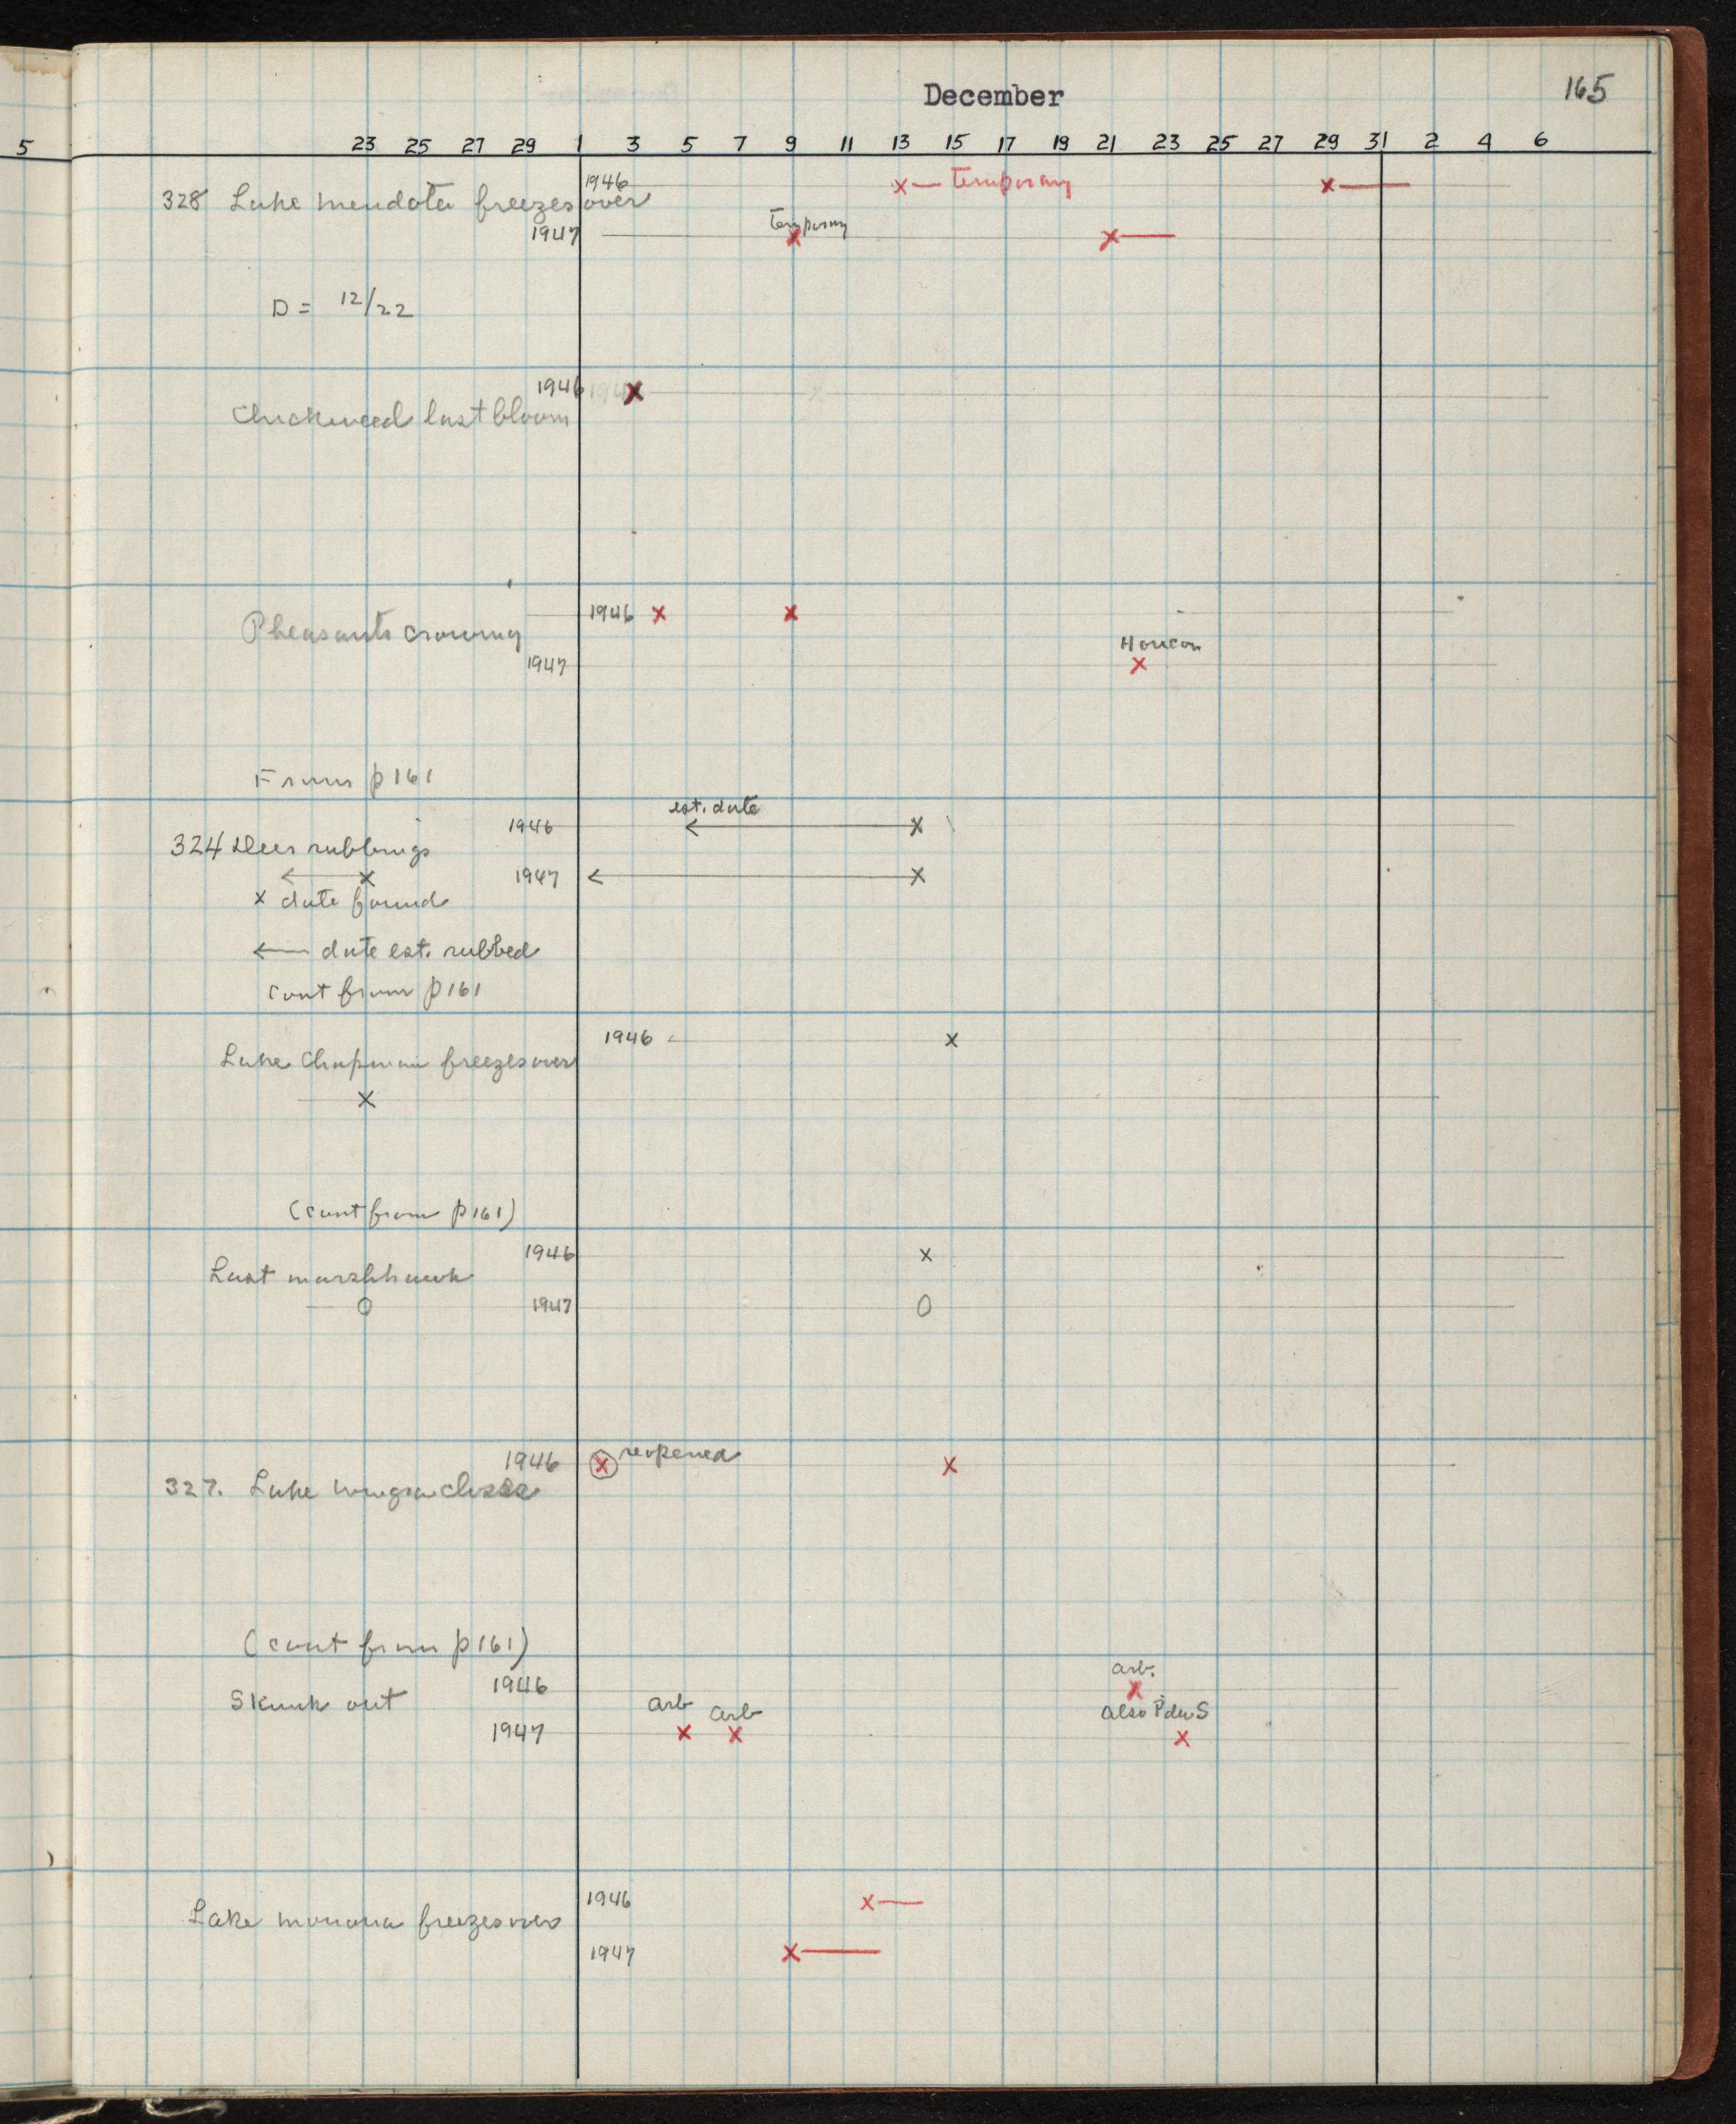 December
165
5
23 25 27 29 1 3 5 7 9 11 13 15 17 19 21 23 25 27 29 31 2 4 6
1946 x— Temporary x—
328 Lake Mendota freezes over
Temporary
1947 x x—
D = 12/22
1946 x
Chickweed last bloom
1946 x x
Pheasants crowing
Horicon
1947 x
From p 161
est. date
1946 ← x
324 Deer rubbings
← x 1947 ← x
x date found
← date est. rubbed
Cont from p 161
1946 x
Lake Chapman freezes over
x
(Cont from p 161)
1946 x
Last marsh hawk
O 1947 O
1946 x reopened x
327. Lake Wingra closes
(Cont from p 161)
arb.
1946 x
Skunk out
arb arb also PduS
1947 x x x
1946 x—
Lake Monona freezes over
1947 x—